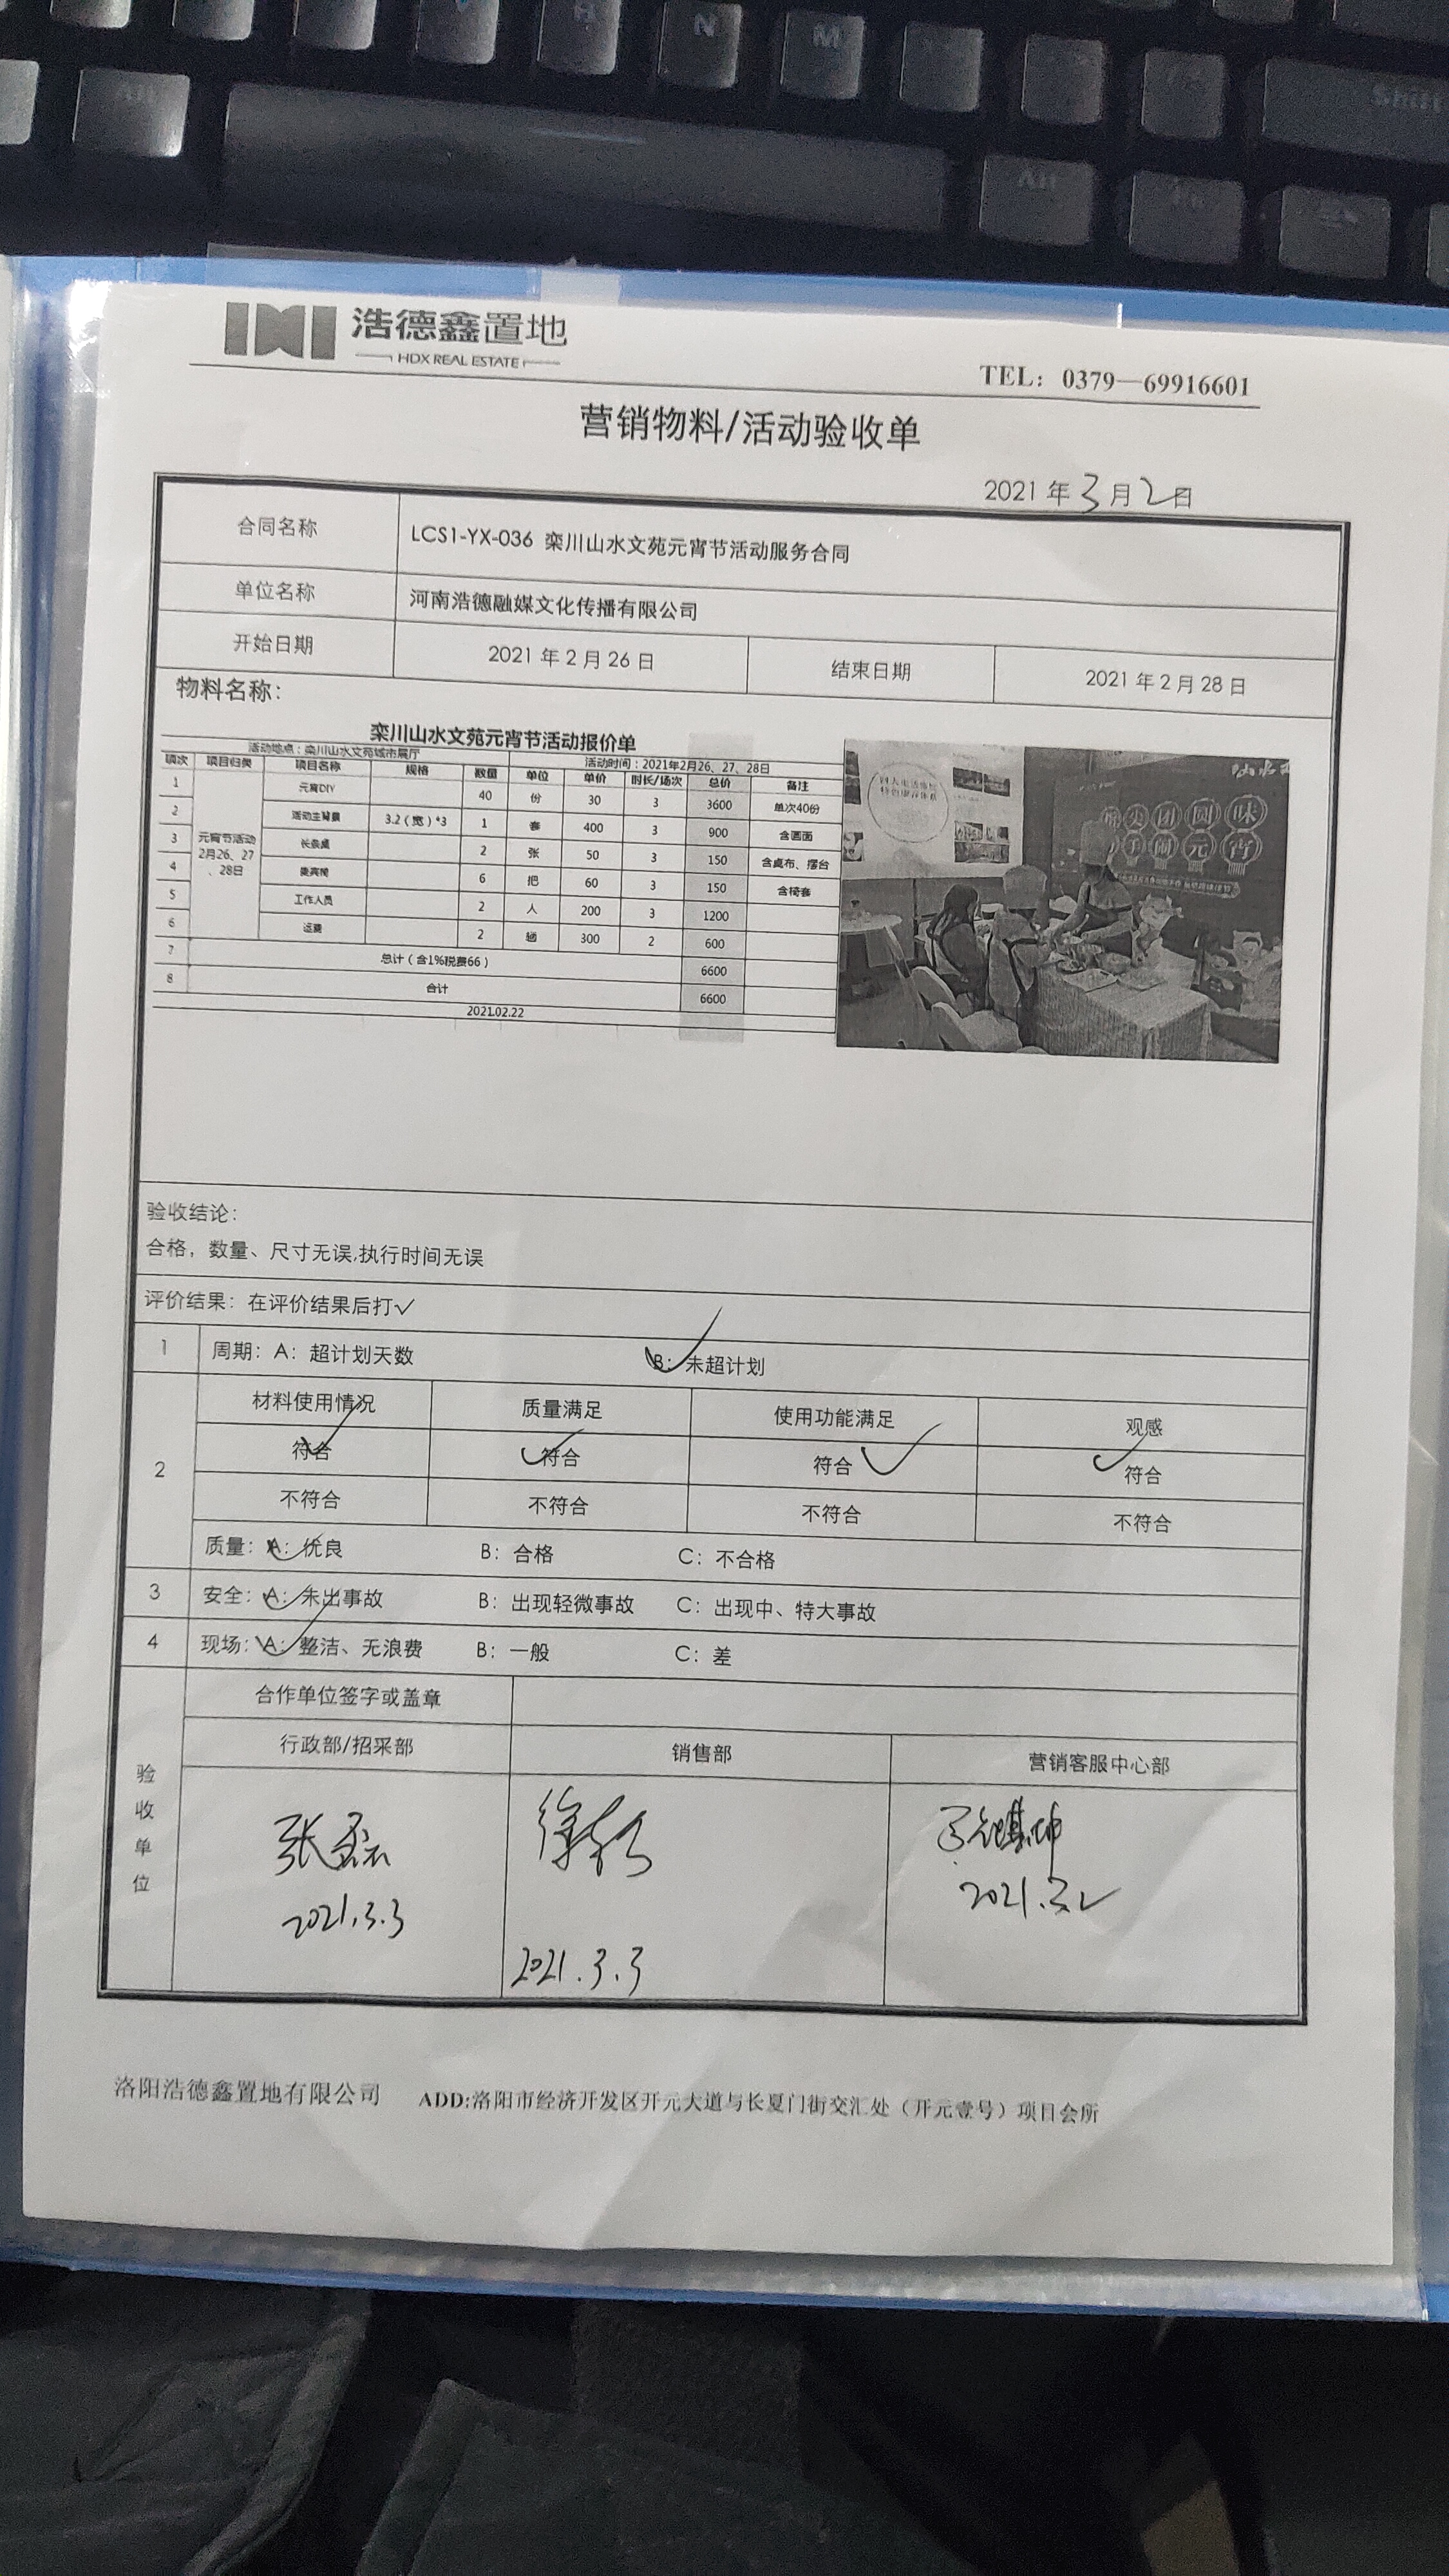 N
M
Alt
Shift
浩德鑫置地
HDX REAL ESTATE
TEL：0379—69916601
营销物料/活动验收单
2021 年 3 月 2 日
合同名称 LCS1-YX-036 栾川山水文苑元宵节活动服务合同
单位名称 河南浩德融媒文化传播有限公司
开始日期 2021 年 2 月 26 日 结束日期 2021 年 2 月 28 日
物料名称：
栾川山水文苑元宵节活动报价单
活动地点：栾川山水文苑城市展厅 活动时间：2021年2月26、27、28日
项次 项目归类 项目名称 规格 数量 单位 单价 时长/场次 总价 备注
元宵节活动
2月26、27
、28日
1 元宵DIY 40 份 30 3 3600 单次40份
2 活动主背景 3.2（宽）*3 1 套 400 3 900 含画面
3 长条桌 2 张 50 3 150 含桌布、摆台
4 贵宾椅 6 把 60 3 150 含椅套
5 工作人员 2 人 200 3 1200
6 运费 2 辆 300 2 600
7 总计（含1%税费66） 6600
8 合计 6600
2021.02.22
团 圆 味
闹 元 宵
验收结论：
合格，数量、尺寸无误,执行时间无误
评价结果：在评价结果后打✓
1 周期：A：超计划天数 B：未超计划
2
材料使用情况 质量满足 使用功能满足 观感
符合 符合 符合 符合
不符合 不符合 不符合 不符合
质量：A：优良 B：合格 C：不合格
3 安全：A：未出事故 B：出现轻微事故 C：出现中、特大事故
4 现场：A：整洁、无浪费 B：一般 C：差
验收单位
合作单位签字或盖章
行政部/招采部 销售部 营销客服中心部
张磊
2021.3.3
2021.3.3
2021.3.2
洛阳浩德鑫置地有限公司 ADD:洛阳市经济开发区开元大道与长夏门街交汇处（开元壹号）项目会所